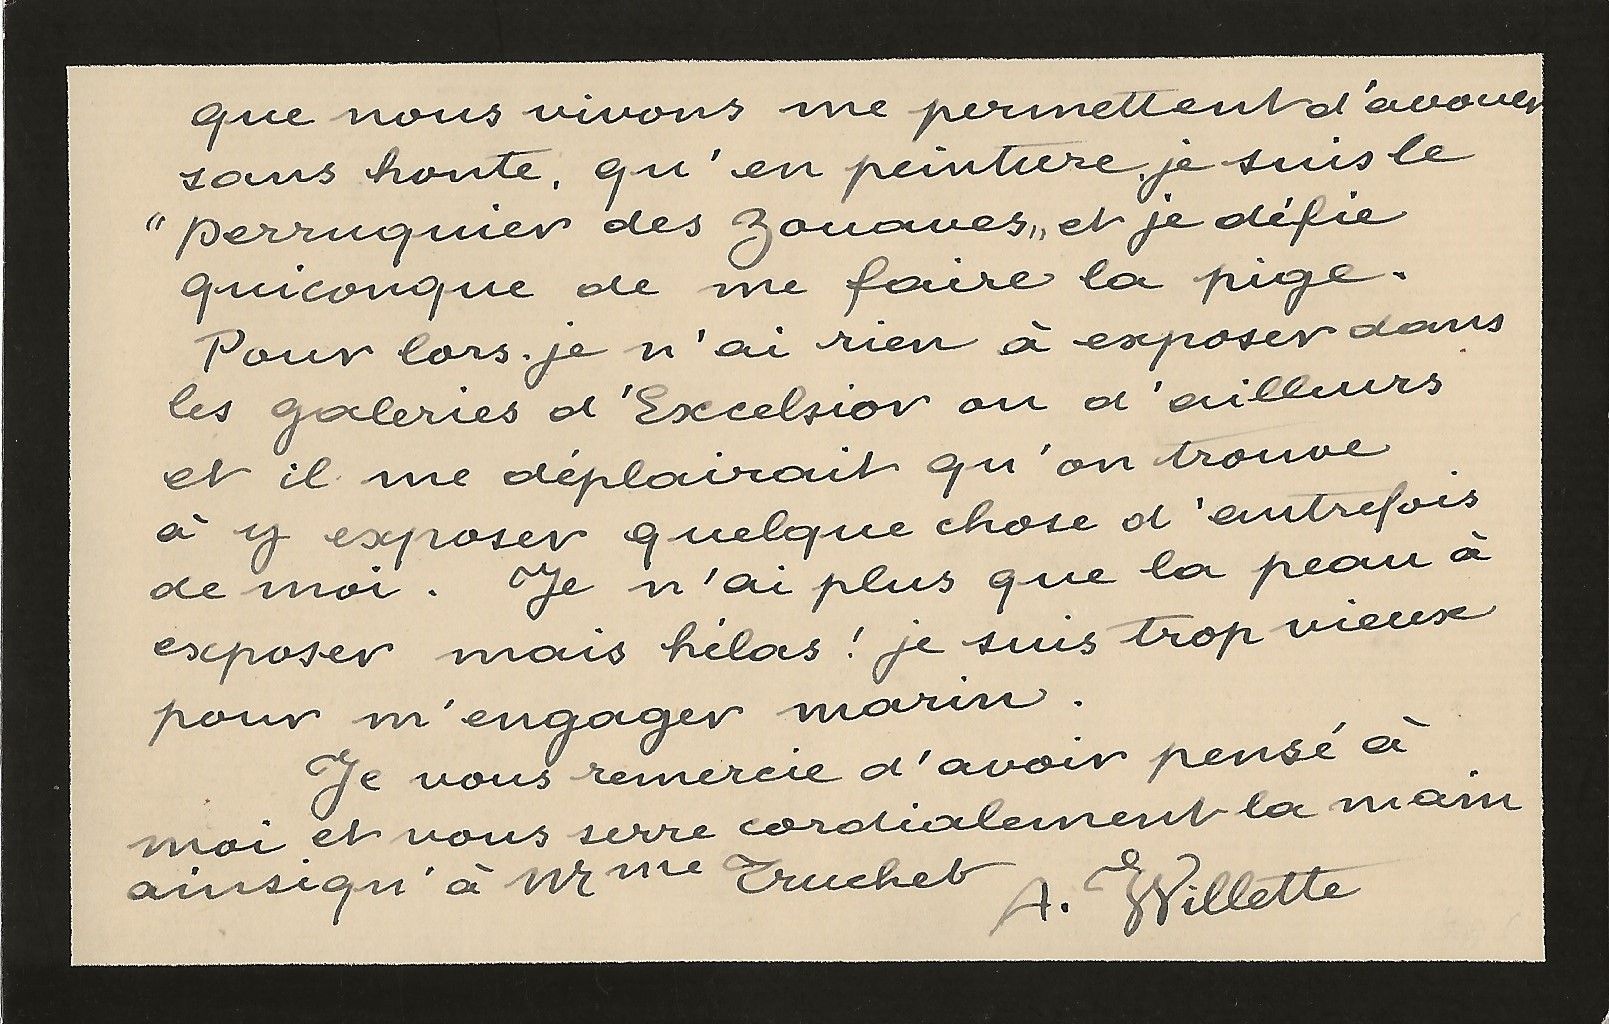 que nous vivons me permettent d'avouer
sans honte, qu'en peinture, je suis le
"perruquier des Zouaves„ et je défie
quiconque de me faire la pige.
Pour lors. je n'ai rien à exposer dans
les galeries d'Excelsior ou d'ailleurs
et il me déplairait qu'on trouve
à y exposer quelque chose d'autrefois
de moi. Je n'ai plus que la peau à
exposer mais hélas! je suis trop vieux
pour m'engager marin.
Je vous remercie d'avoir pensé à
moi et vous serre cordialement la main
ainsiqu'à Mme Truchet
A. Willette